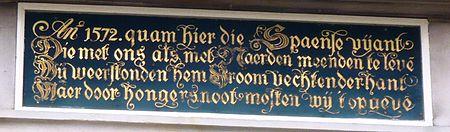 An 1572. quam hier die Spaense vijant
Die met ons als met Naerden meenden te leve
Wij weerstonden hem Vroom vechtenderhant
Maer door hongersnoot mosten wij t opgeve